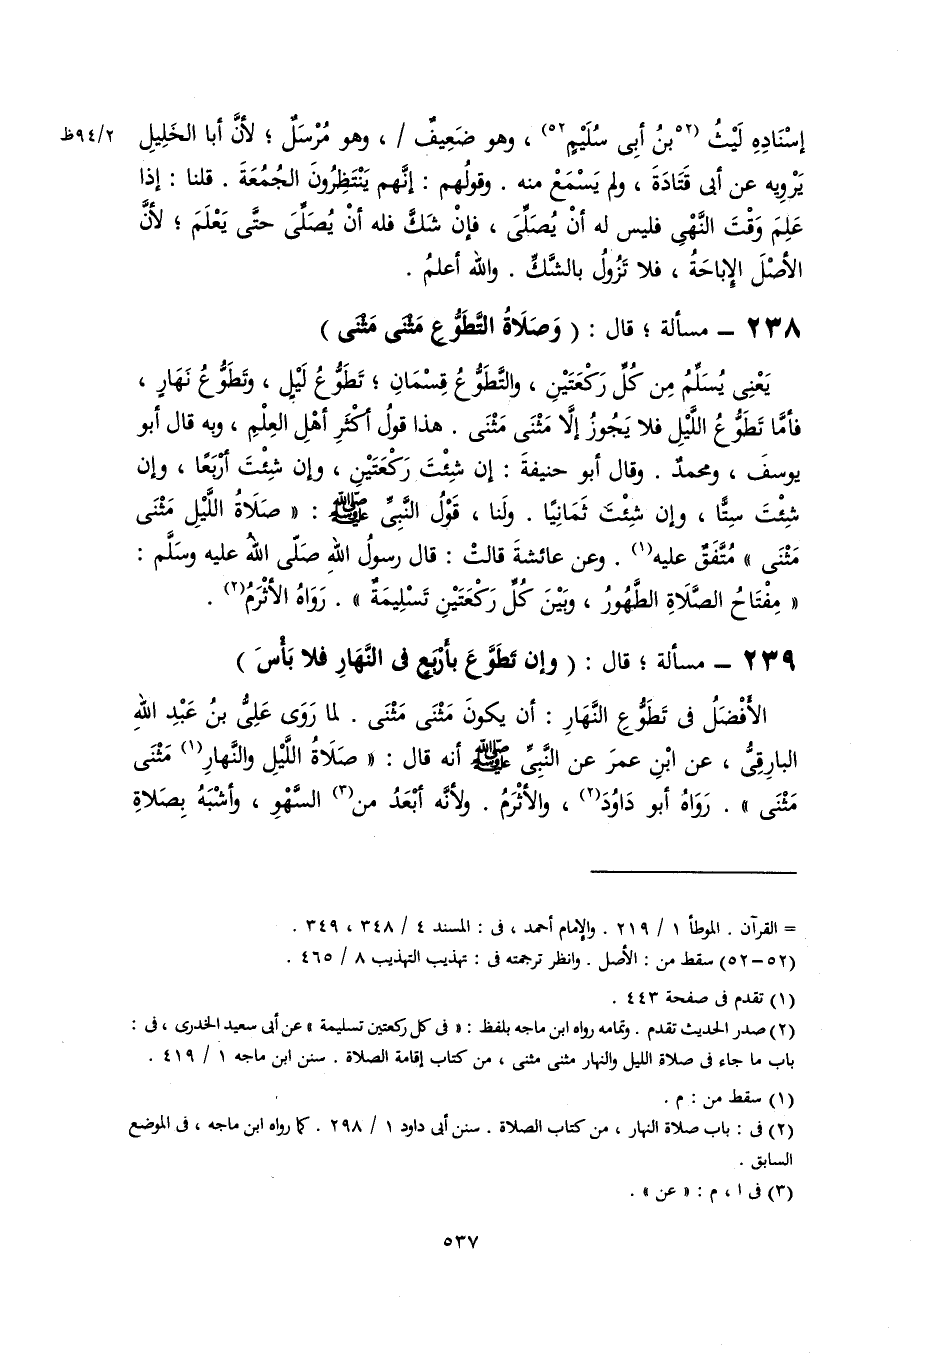 إسْنَادِهِ لَيْثُ (٥٢بنُ أبِى سُلَيْمٍ٥٢) ، وهو ضَعِيفٌ / ، وهو مُرْسَلٌ ؛ لأنَّ أبا الخَلِيلِ ٩٤/٢ظ
يَرْوِيه عن أبى قَتَادَةَ ، ولم يَسْمَعْ منه . وقولُهم : إنَّهم يَنْتَظِرُونَ الجُمُعَةَ . قلنا : إذا
عَلِمَ وَقْتَ النَّهْىِ فليس له أنْ يُصَلِّىَ ، فإنْ شَكَّ فله أنْ يُصَلِّىَ حتَّى يَعْلَمَ ؛ لأنَّ
الأصْلَ الإِباحَةُ ، فلا تَزُولُ بالشَّكِّ . والله أعلمُ .
٢٣٨ – مسألة ؛ قال : ( وَصَلَاةُ التَّطَوُّعِ مَثْنَى مَثْنَى )
يَعْنِى يُسَلِّمُ مِن كُلِّ رَكْعَتَيْنِ ، والتَّطَوُّعُ قِسْمَانِ ؛ تَطَوُّعُ لَيْلٍ ، وتَطَوُّعُ نَهَارٍ ،
فأمَّا تَطَوُّعُ اللَّيْلِ فلا يَجُوزُ إلَّا مَثْنَى مَثْنَى . هذا قولُ أكْثَرِ أهْلِ العِلْمِ ، وبه قال أبو
يوسفَ ، ومحمدٌ . وقال أبو حنيفةَ : إن شِئْتَ رَكْعَتَيْنِ ، وإن شِئْتَ أرْبَعًا ، وإن
شِئْتَ سِتًّا ، وإن شِئْتَ ثَمَانِيًا . ولَنا ، قَوْلُ النَّبِىِّ ﷺ : « صَلَاةُ اللَّيْلِ مَثْنَى
مَثْنَى » مُتَّفَقٌ عليه(١) . وعن عائشةَ قالتْ : قال رسولُ اللهِ صَلَّى اللهُ عليه وسَلَّم :
« مِفْتَاحُ الصَّلَاةِ الطَّهُورُ ، وبَيْنَ كُلِّ رَكْعَتَيْنِ تَسْلِيمَةٌ » . رَوَاهُ الأثْرَمُ(٢) .
٢٣٩ – مسألة ؛ قال : ( وإن تَطَوَّعَ بأَرْبَعٍ فى النَّهَارِ فلا بَأْسَ )
الأَفْضَلُ فى تَطَوُّعِ النَّهَارِ : أن يكونَ مَثْنَى مَثْنَى . لما رَوَى عَلِىُّ بنُ عَبْدِ اللهِ
البارِقِىُّ ، عن ابْنِ عمرَ عن النَّبِىِّ ﷺ أنه قال : « صَلَاةُ اللَّيْلِ والنَّهارِ(١) مَثْنَى
مَثْنَى » . رَوَاهُ أبو دَاوُدَ(٢) ، والأثْرَمُ . ولأنَّه أبْعَدُ من(٣) السَّهْوِ ، وأشْبَهُ بِصَلاةِ
= القرآن . الموطأ ١ / ٢١٩ . والإمام أحمد ، فى : المسند ٤ / ٣٤٨ ، ٣٤٩ .
(٥٢-٥٢) سقط من : الأصل . وانظر ترجمته فى : تهذيب التهذيب ٨ / ٤٦٥ .
(١) تقدم فى صفحة ٤٤٣ .
(٢) صدر الحديث تقدم . وتمامه رواه ابن ماجه بلفظ : « فى كل ركعتين تسليمة » عن أبى سعيد الخدرى ، فى :
باب ما جاء فى صلاة الليل والنهار مثنى مثنى ، من كتاب إقامة الصلاة . سنن ابن ماجه ١ / ٤١٩ .
(١) سقط من : م .
(٢) فى : باب صلاة النهار ، من كتاب الصلاة . سنن أبى داود ١ / ٢٩٨ . كما رواه ابن ماجه ، فى الموضع
السابق .
(٣) فى ا ، م : « عن » .
٥٣٧